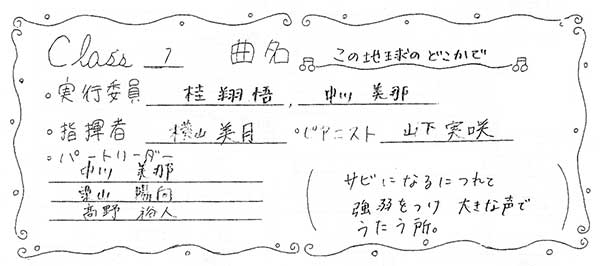 Class 7 曲名 この地球のどこかで
・実行委員 桂翔悟, 中川 美那
・指揮者 横山 美月 ・ピアニスト 山下 実咲
・パートリーダー
中川 美那
梁山 陽向
髙野 裕人
サビになるにつれて
強弱をつけ 大きな声で
うたう所。